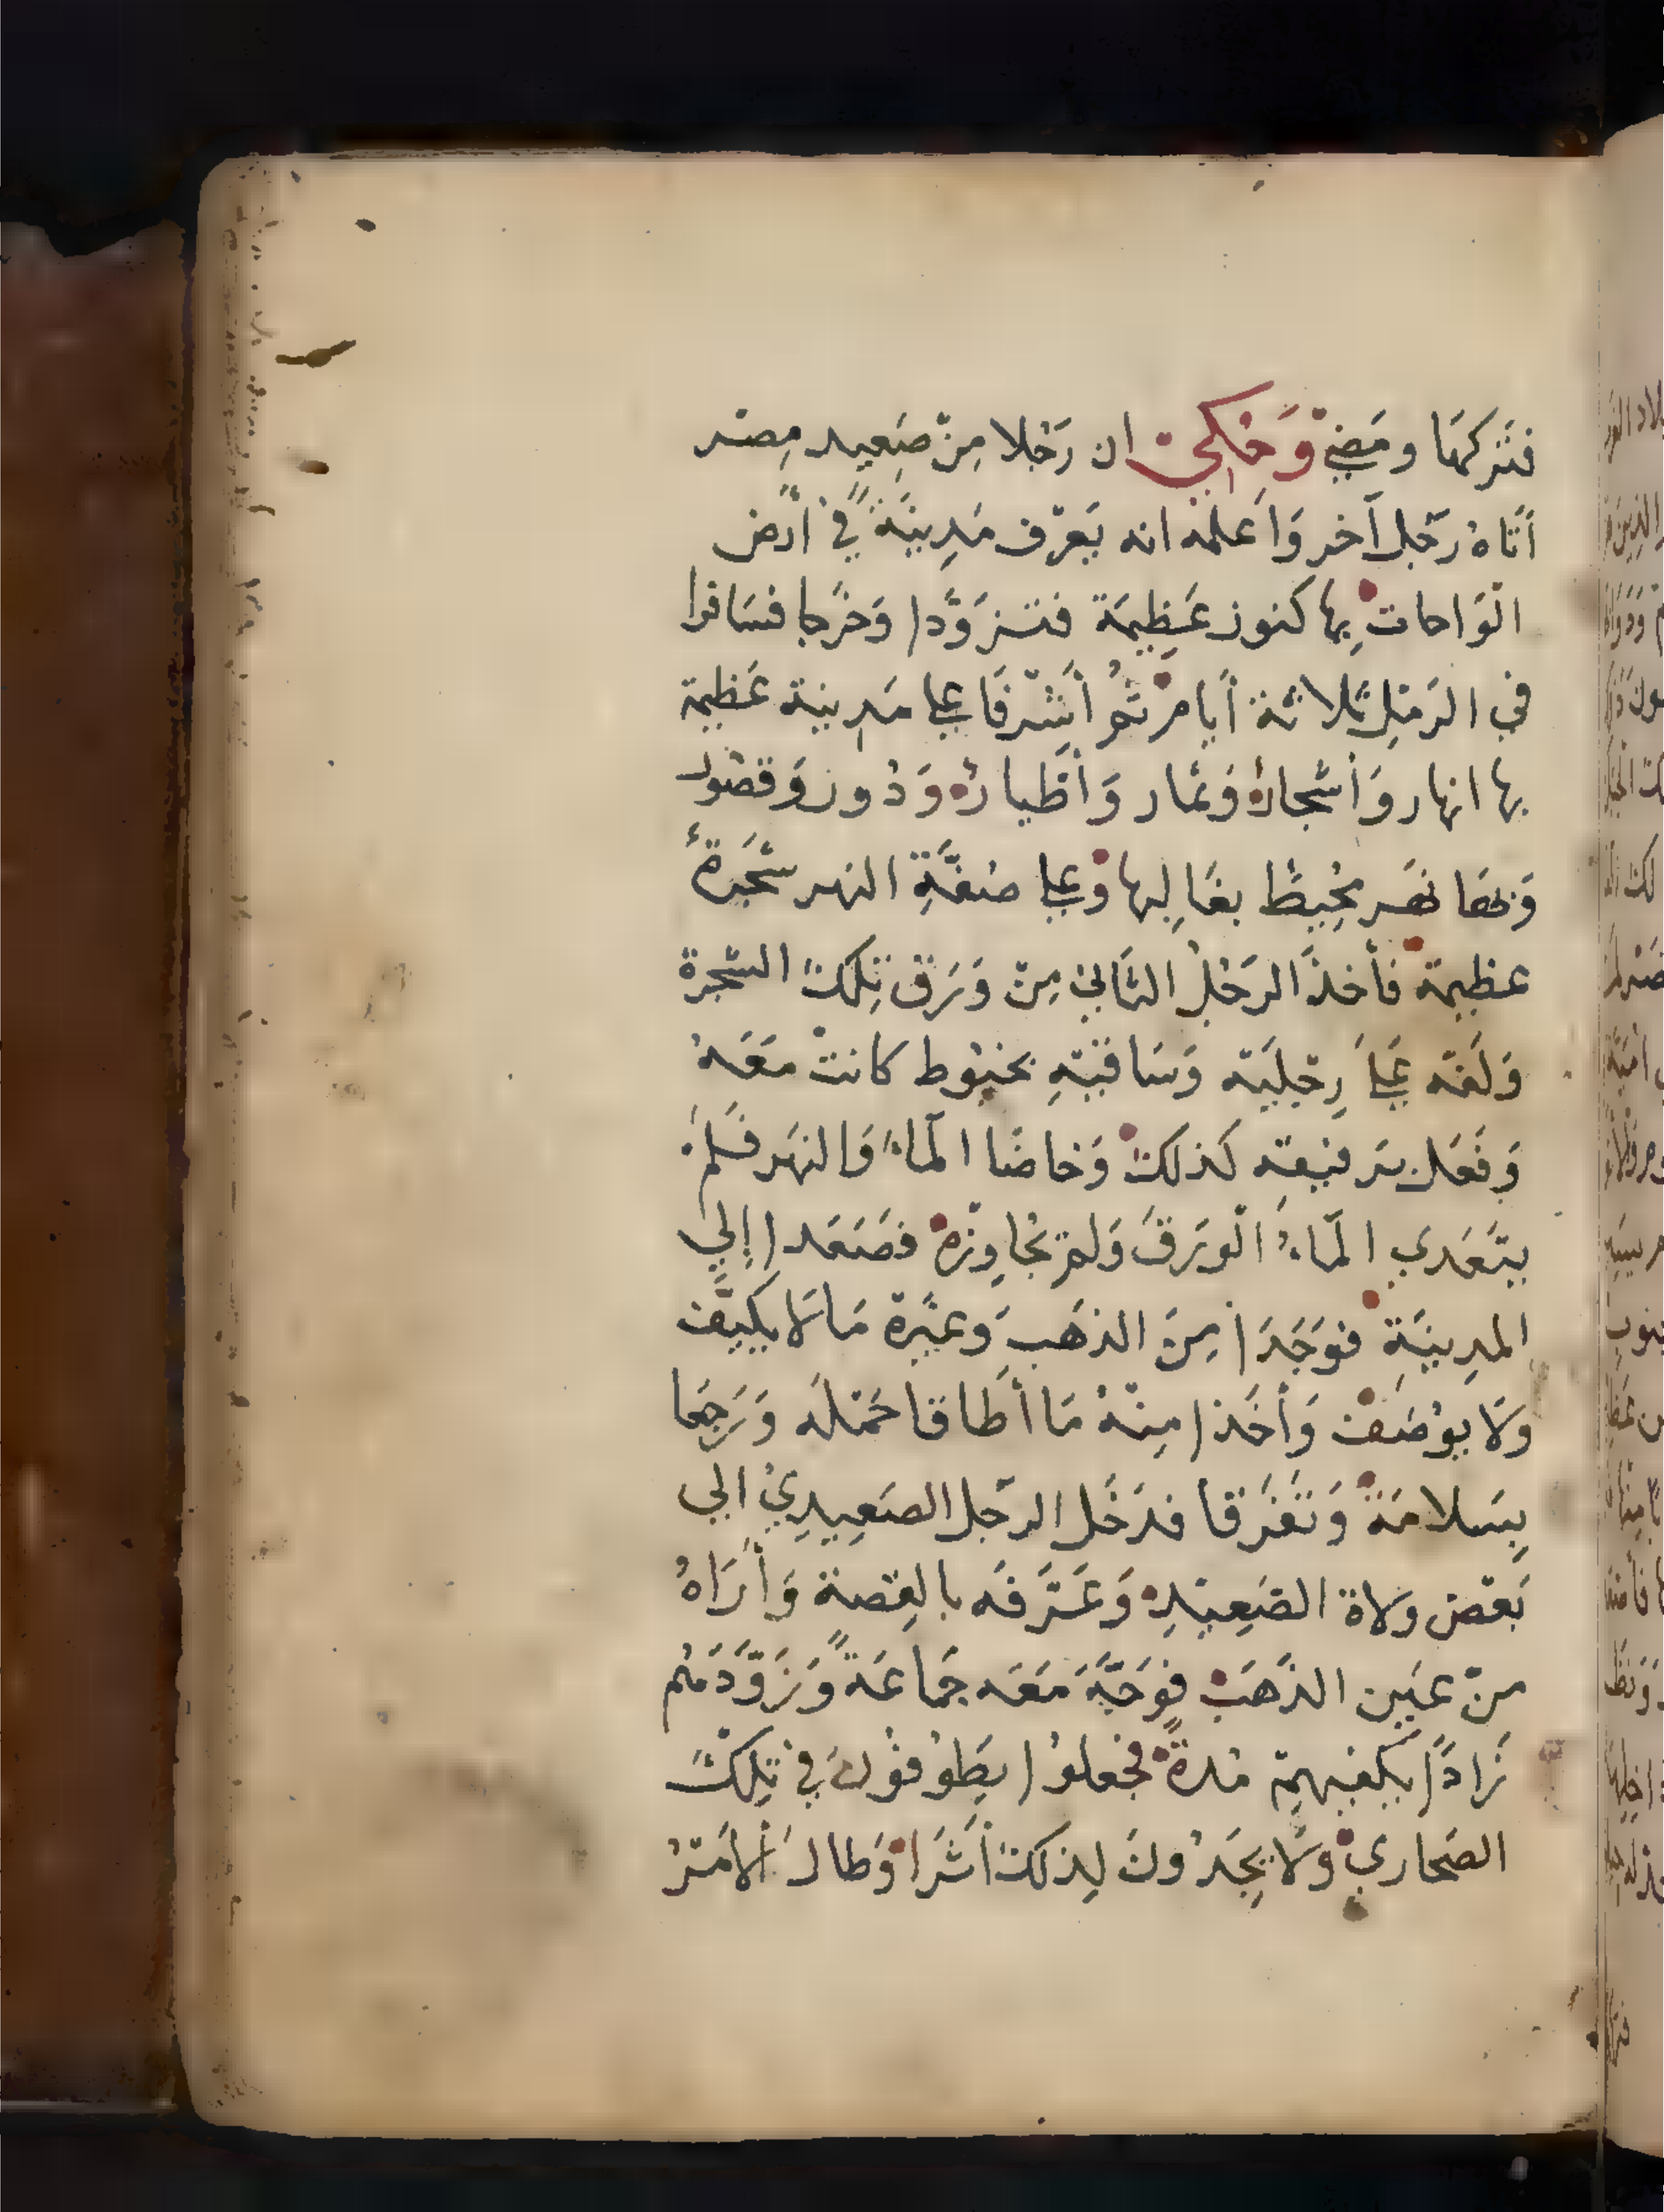 فَتَركهَا ومَضيْ وَحُكِيَ ان رَجُلا مِنْ صَعِيد مِصْر
أتَاهُ رَجُل آخر وَاَعلَمه انه يَعْرف مَدِينَةً فيْ أرْض
الوَاحات بِها كنوز عَظِيمَة فتَزوَّدا وَخَرجا فسَافرا
في الرَمْلِ ثلاثة أيامْ ثمُ أشْرفَا علي مَدينة عَظيمة
بها انهار وَأشْجارُ وَثمار وَأطْيارُ وَدُور وَقصُور
وَبَها نهَر مُحِيطُ بغَالِبها وَعلي ضفَّةِ النهر شَجَرةُ
عظِيمة فأخذَ الرَجُل الثَاني مِنْ وَرَق تِلكَ الشجرة
وَلَفه عَليَ رِجْليْه وَسَاقيْهِ بخيُوط كانتْ مَعَهُ
وَفَعَل برَفيقِه كذلكَ وَخاضَا المَاءَ وَالنهَر فَلمْ
يتَعَدي المَاءُ الوَرَقَ وَلمْ يُجَاوِزهُ فصَعَدا إلي
المدِينَةِ فوَجَدَا مِنَ الذهَبِ وَغيْرة مَا لَا يكَيَّف
ولَا يوُصَف وَأخَذا مِنْهُ مَا أطَاقا حَمْلَه وَرَجعَا
بِسَلامَة وَتفَرقا فدَخَل الرجل الصَعِيدِيُ الي
بَعْض ولاة الصَعِيْدِ وَعَرَّفه بالقِصة وَأرَاهُ
منْ عَيْن الذَهَبْ فوَجَّهَ مَعَه جمَاعَةً وَزَوَّدَهُم
زَادًا يَكفيهِمْ مُدةً فجعلوُا يَطوُفوُنَ فيْ تِلكَ
الصَحاريْ ولَا يَجدُونَ لِذلكَ أثَرَا وَطالَ الأمْرُ